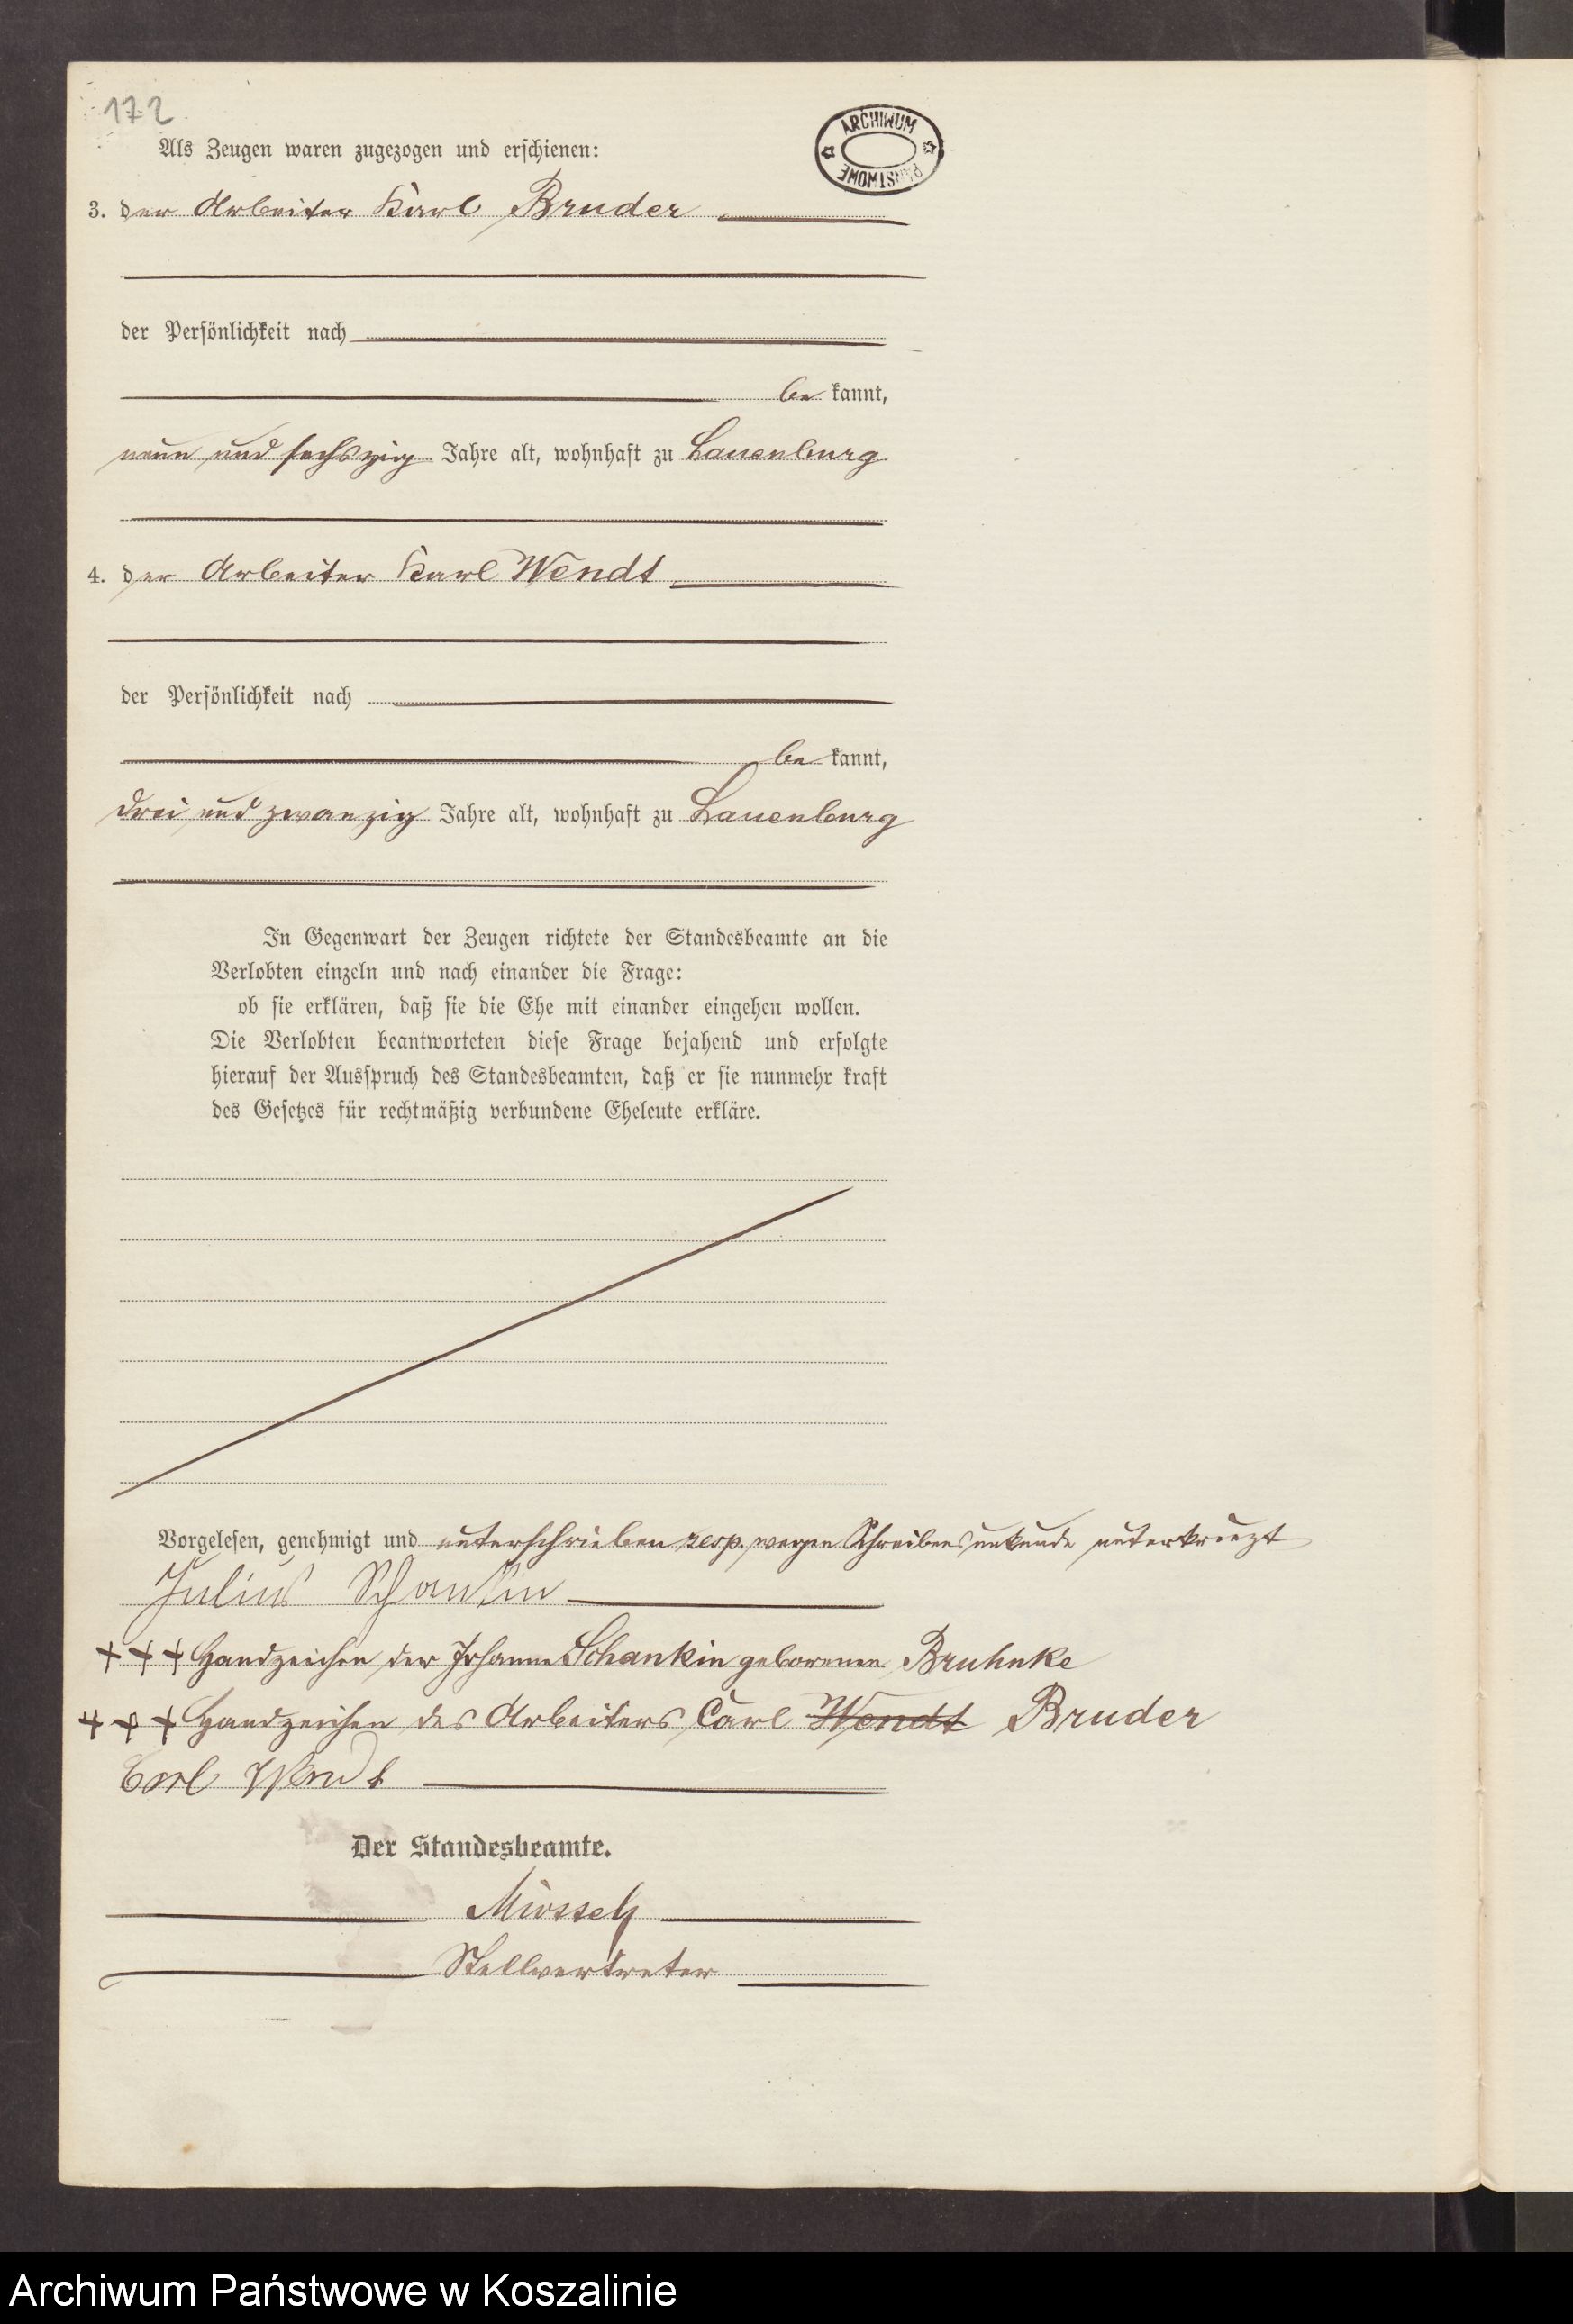 172
ARCHIWUM PAŃSTWOWE
Als Zeugen waren zugezogen und erschienen:
3. der Arbeiter Karl Bruder
der Persönlichkeit nach
be kannt,
neun und sechszig Jahre alt, wohnhaft zu Lauenburg
4. der Arbeiter Karl Wendt
der Persönlichkeit nach
be kannt,
drei und zwanzig Jahre alt, wohnhaft zu Lauenburg
In Gegenwart der Zeugen richtete der Standesbeamte an die
Verlobten einzeln und nach einander die Frage:
ob sie erklären, daß sie die Ehe mit einander eingehen wollen.
Die Verlobten beantworteten diese Frage bejahend und erfolgte
hierauf der Ausspruch des Standesbeamten, daß er sie nunmehr kraft
des Gesetzes für rechtmäßig verbundene Eheleute erkläre.
Vorgelesen, genehmigt und unterschrieben resp. wegen Schreibensunkunde unterkreuzt
Julius Schankin
+++ Handzeichen der Johanne Schankin geborenen Bruhnke
+++ Handzeichen des Arbeiters Carl Wendt Bruder
Carl Wendt
Der Standesbeamte.
Stellvertreter
Archiwum Państwowe w Koszalinie